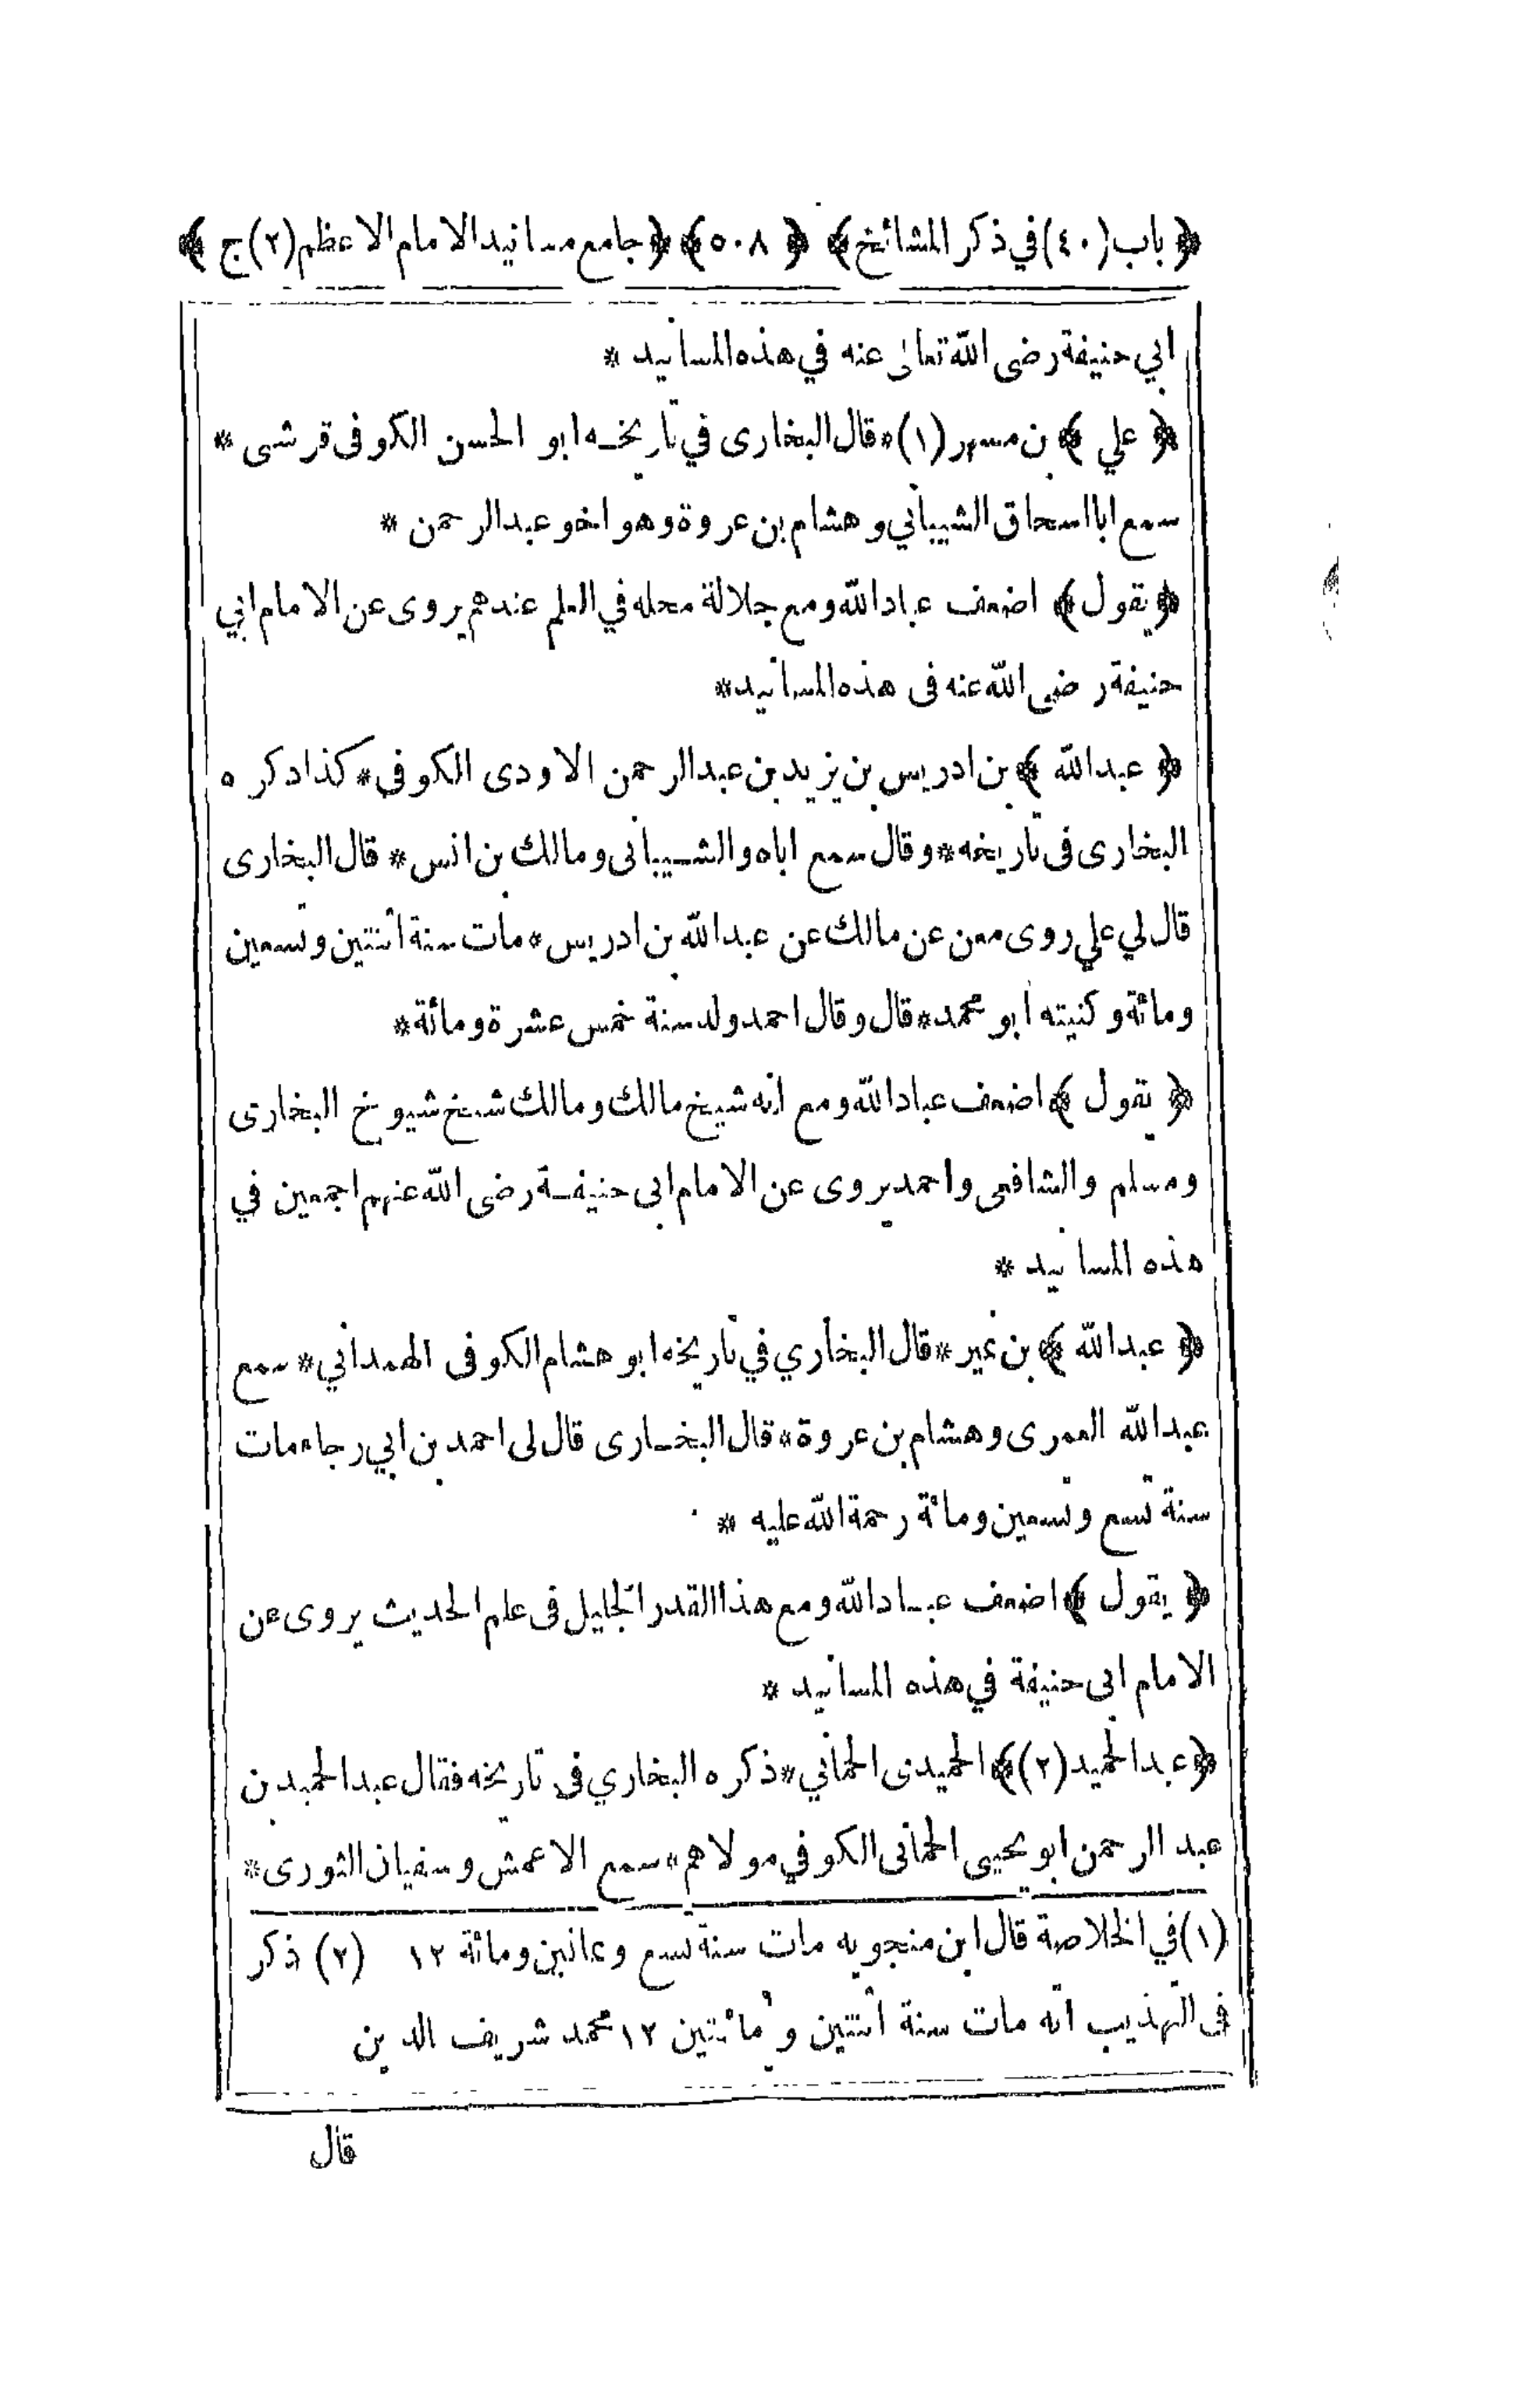 ﴿ باب (٤٠) في ذكر المشائخ ﴾ ﴿ ٥٠٨ ﴾ ﴿ جامع مسانيد الامام الاعظم (٢) ج ﴾
ابي حنيفة رضى الله تعالى عنه في هذه المسانيد *
﴿ علي ﴾ بن مسهر (١) * قال البخارى في تاريخـه ابو الحسن الكوفى قرشى *
سمع ابا اسحاق الشيباني وهشام بن عروة وهو اخو عبد الرحمن *
﴿ يقول ﴾ اضعف عباد الله ومع جلالة محله في العلم عندهم يروى عن الامام ابي
حنيفة رضى الله عنه فى هذه المسانيد *
﴿ عبد الله ﴾ بن ادريس بن يزيد بن عبد الرحمن الاودى الكوفى * كذا ذكره
البخارى فى تاريخه * وقال سمع اباه والشـيبانى ومالك بن انس * قال البخارى
قال لي علي روى معن عن مالك عن عبد الله بن ادريس * مات سنة اثنتين وتسعين
ومائة وكنيته ابو محمد * قال وقال احمد ولد سنة خمس عشرة ومائة *
﴿ يقول ﴾ اضعف عباد الله ومع انه شيخ مالك ومالك شيخ شيوخ البخارى
ومسلم والشافعى واحمد يروى عن الامام ابى حنيفـة رضى الله عنهم اجمعين في
هذه المسانيد *
﴿ عبد الله ﴾ بن نمير * قال البخاري في تاريخه ابو هشام الكوفى الهمداني * سمع
عبد الله العمرى وهشام بن عروة * قال البخـارى قال لى احمد بن ابي رجاء مات
سنة تسع وتسعين ومائة رحمة الله عليه *
﴿ يقول ﴾ اضعف عبـاد الله ومع هذا القدر الجليل فى علم الحديث يروى عن
الامام ابى حنيفة في هذه المسانيد *
﴿ عبد الحميد (٢) ﴾ الحميدى الحماني * ذكره البخاري فى تاريخه فقال عبد الحميد بن
عبد الرحمن ابو يحيى الحمانى الكوفي مولاهم * سمع الاعمش وسفيان الثورى *
(١) في الخلاصة قال ابن منجويه مات سنة تسع وثمانين ومائة ١٢ (٢) ذكر
فى التهذيب انه مات سنة اثنتين ومائتين ١٢ محمد شريف الدين
قال